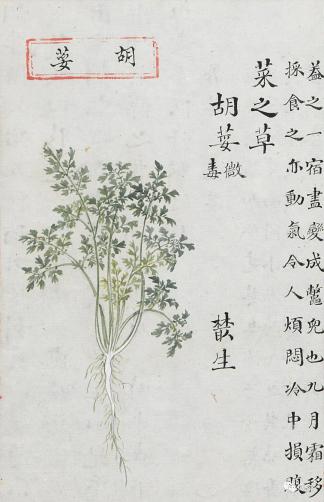 益之一宿盡變成鼈兒也九月霜移
採食之亦動氣令人煩悶冷中損腹
菜之草
胡荽
微
毒
生
胡荽